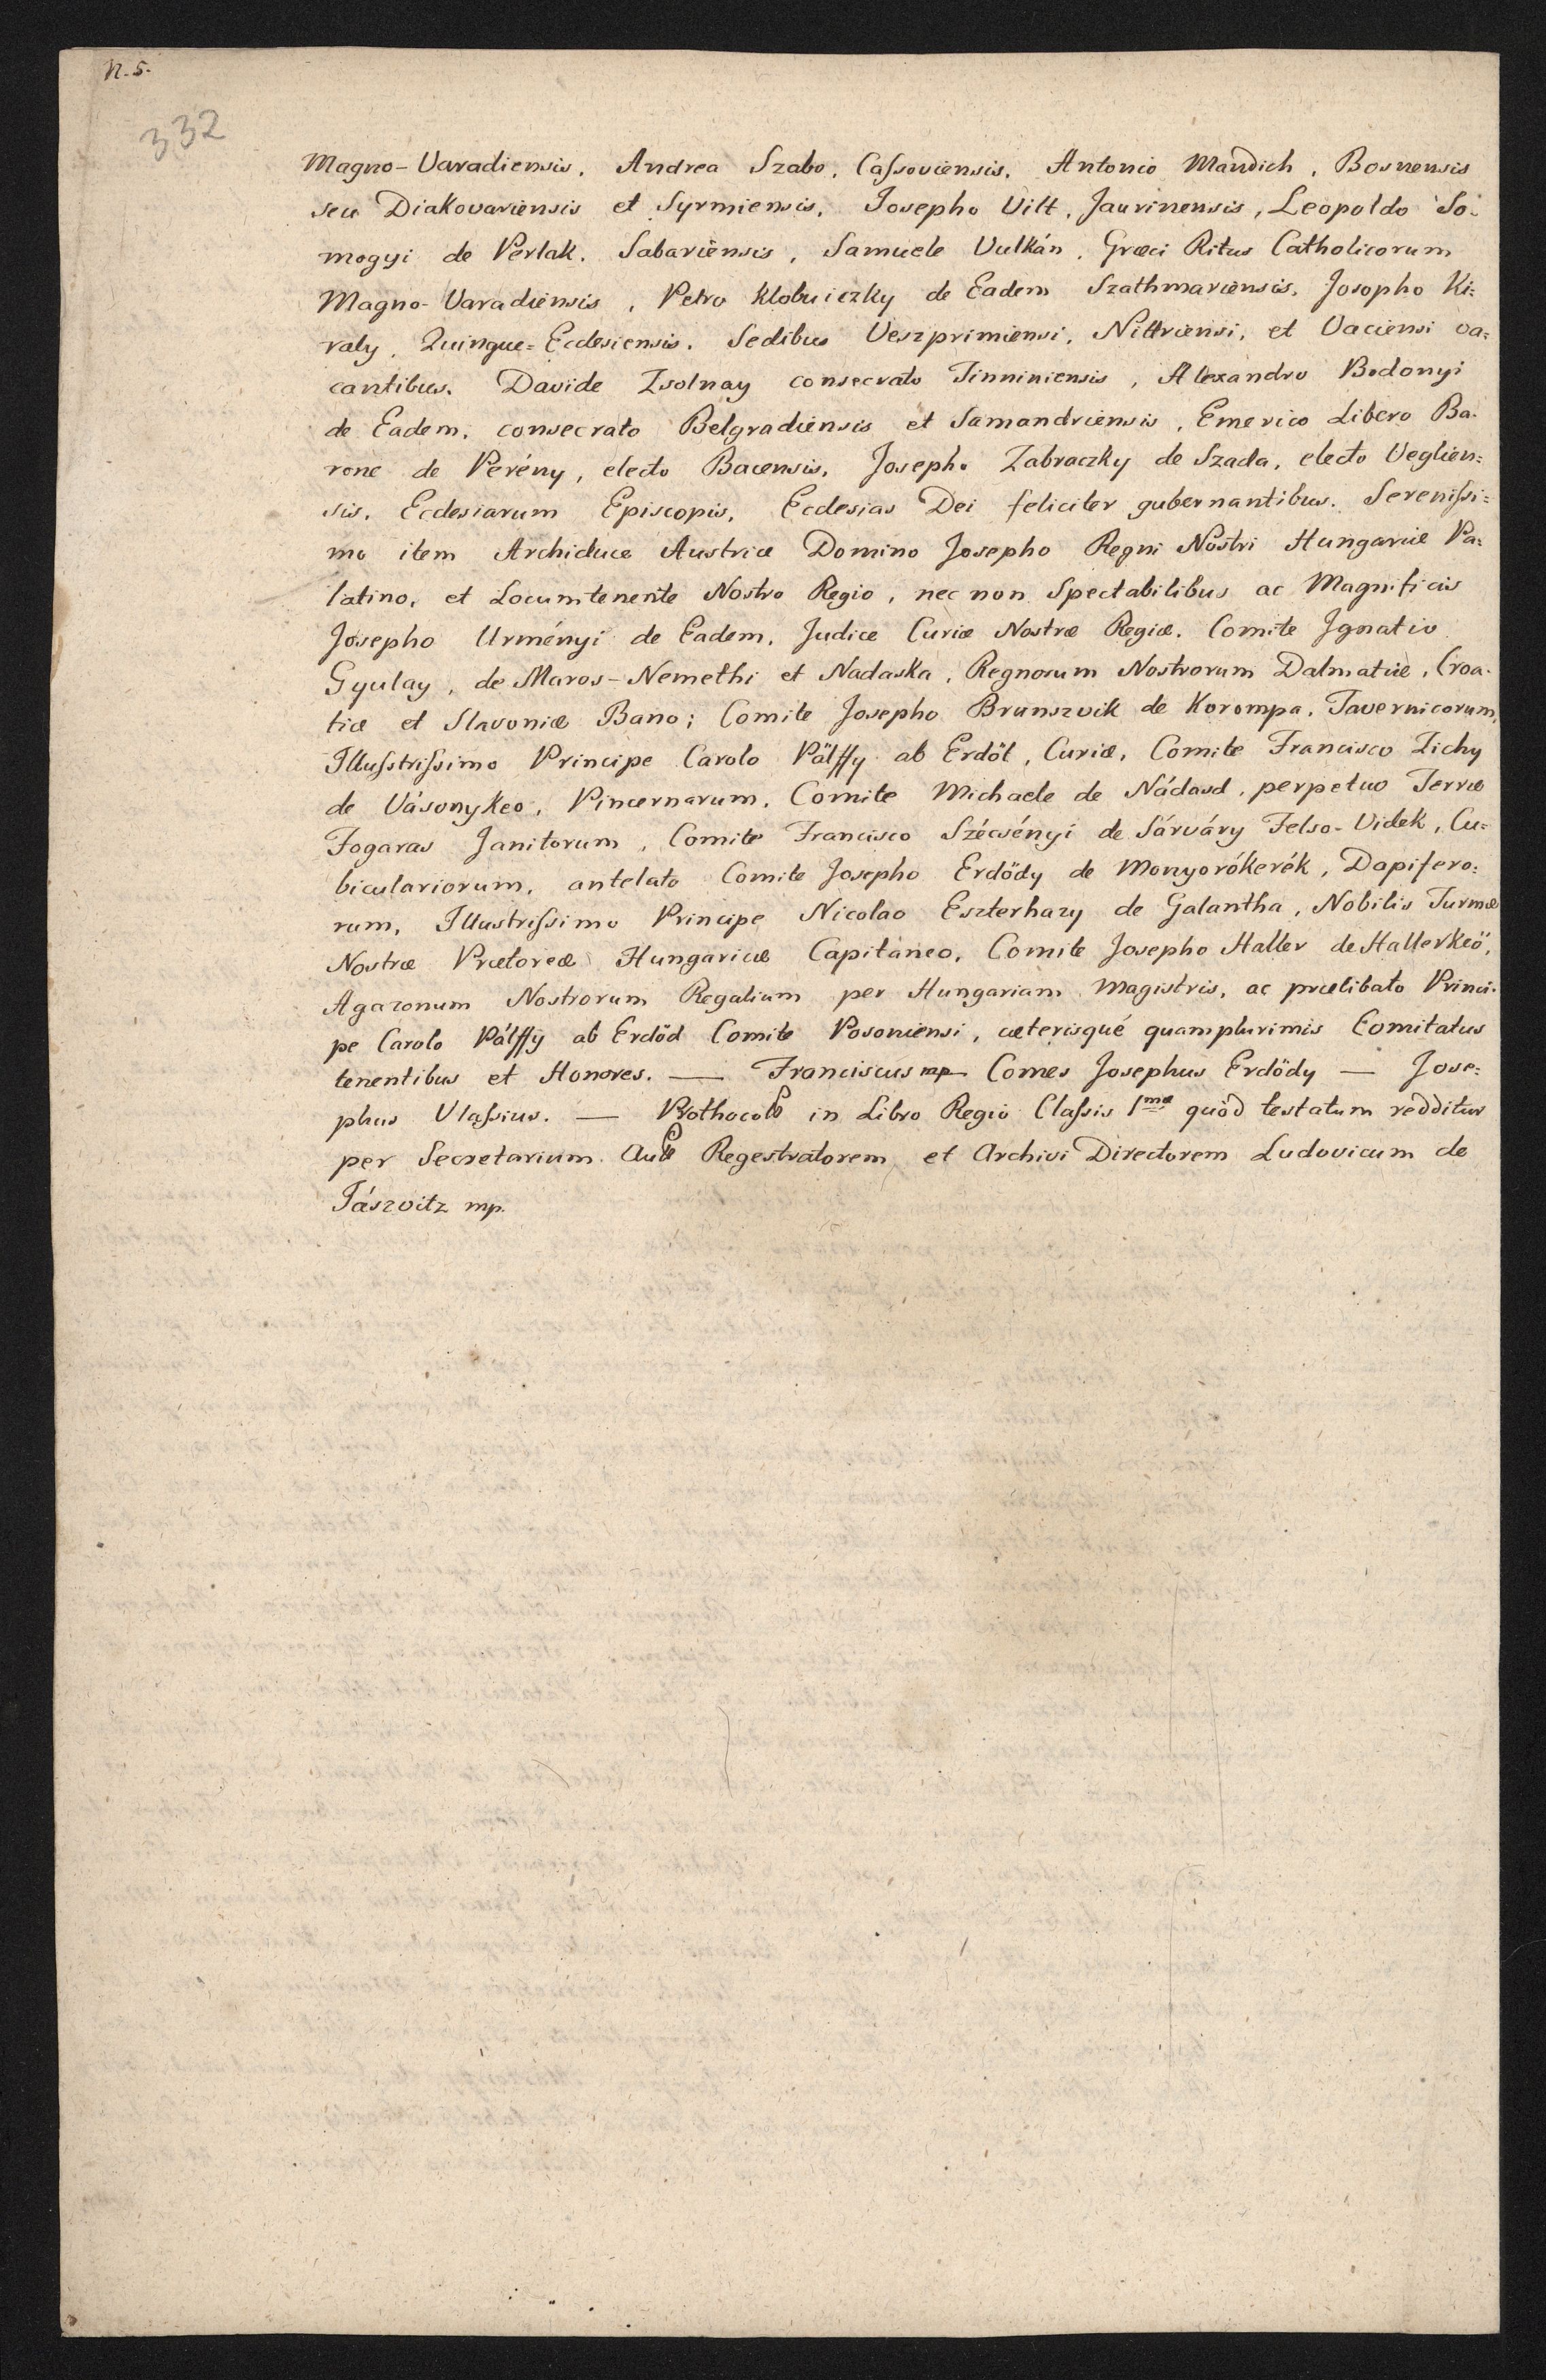 N. 5.
332
Magno-Varadiensis, Andrea Szabo, Caſsoviensis, Antonio Mandich, Bosnensis
seu Diakovariensis et Syrmiensis, Josepho Vilt, Jaurinensis, Leopoldo So-
mogyi de Perlak, Sabariensis, Samuele Vulkán, Græci Ritus Catholicorum
Magno-Varadiensis, Petro Klobuiczky de Eadem Szathmariensis, Josopho Ki=
raly, Quinque=Ecclesiensis. Sedibus Veszprimiensi, Nittriensi, et Vaciensi va=
cantibus. Davide Zsolnay consecrato Tinniniensis, Alexandro Bodonyi
de Eadem, consecrato Belgradiensis et Samandriensis, Emerico Libero Ba-
rone de Perény, electo Bacensis, Josepho Zabraczky de Szada, electo Veglien=
sis, Ecclesiarum Episcopis, Ecclesias Dei feliciter gubernantibus. Sereniſsi=
mo item Archiduce Austriæ Domino Josepho Regni Nostri Hungariæ Pa=
latino, et Locumtenente Nostro Regio, nec non Spectabilibus ac Magnificis
Josepho Urményi de Eadem, Judice Curiæ Nostræ Regiæ, Comite Ignatio
Gyulay, de Maros-Nemethi et Nadaska, Regnorum Nostrorum Dalmatiæ, Croa-
tiæ et Slavoniæ Bano; Comite Josepho Brunszvik de Korompa, Tavernicorum,
Illusstriſsimo Principe Carolo Pálffy ab Erdöt, Curiæ, Comite Francisco Zichy
de Vásonykeo, Pincernarum, Comite Michaele de Nádasd, perpetuo Terræ
Fogaras Janitorum, Comite Francisco Szécsényi de Sárváry Felso-Videk, Cu=
biculariorum, antelato Comite Josepho Erdödy de Monyorókerék, Dapifero=
rum, Illustriſsimo Principe Nicolao Eszterhazy de Galantha, Nobilis Turmæ
Nostræ Prætoreæ Hungaricæ Capitaneo, Comite Josepho Haller de Hallerkeö,
Agazonum Nostrorum Regalium per Hungariam Magistris, ac prælibato Princi-
pe Carolo Pálffÿ ab Erdöd Comite Posoniensi, cæterisqué quamplurimis Comitatus
tenentibus et Honores. — Franciscus mp — Comes Josephus Erdödy — Jose=
phus Vlaſsius. — in Libro Regio Claſsis 1mæ quòd testatum redditur
per Secretarium Regestratorem et Archivi Directorem Ludovicum de
Jászvitz mp.